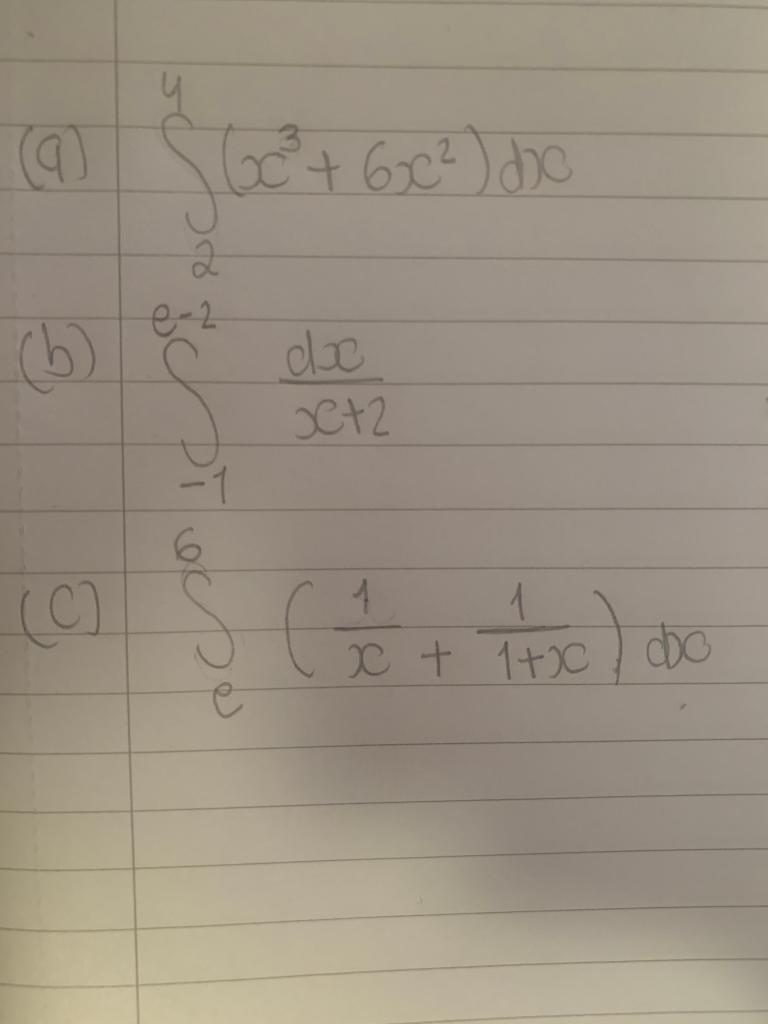 (a) ∫₂⁴ (x³ + 6x²) dx
(b) ∫₋₁ᵉ⁻² dx/(x+2)
(c) ∫ₑ⁶ (1/x + 1/(1+x)) dx